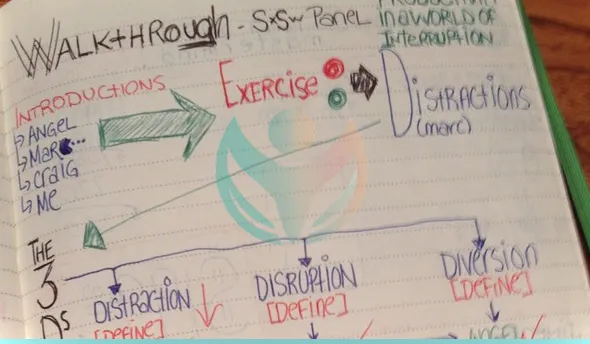 WALKTHROUGH - SxSW PANEL
IN A WORLD OF
INTERRUPTION
INTRODUCTIONS
↳ ANGEL
↳ MARC...
↳ CRAIG
↳ ME
EXERCISE
DISTRACTIONS
(marc)
THE
3
Ds
DISTRACTION
[DEFINE]
DISRUPTION
[DEFINE]
DIVERSION
[DEFINE]